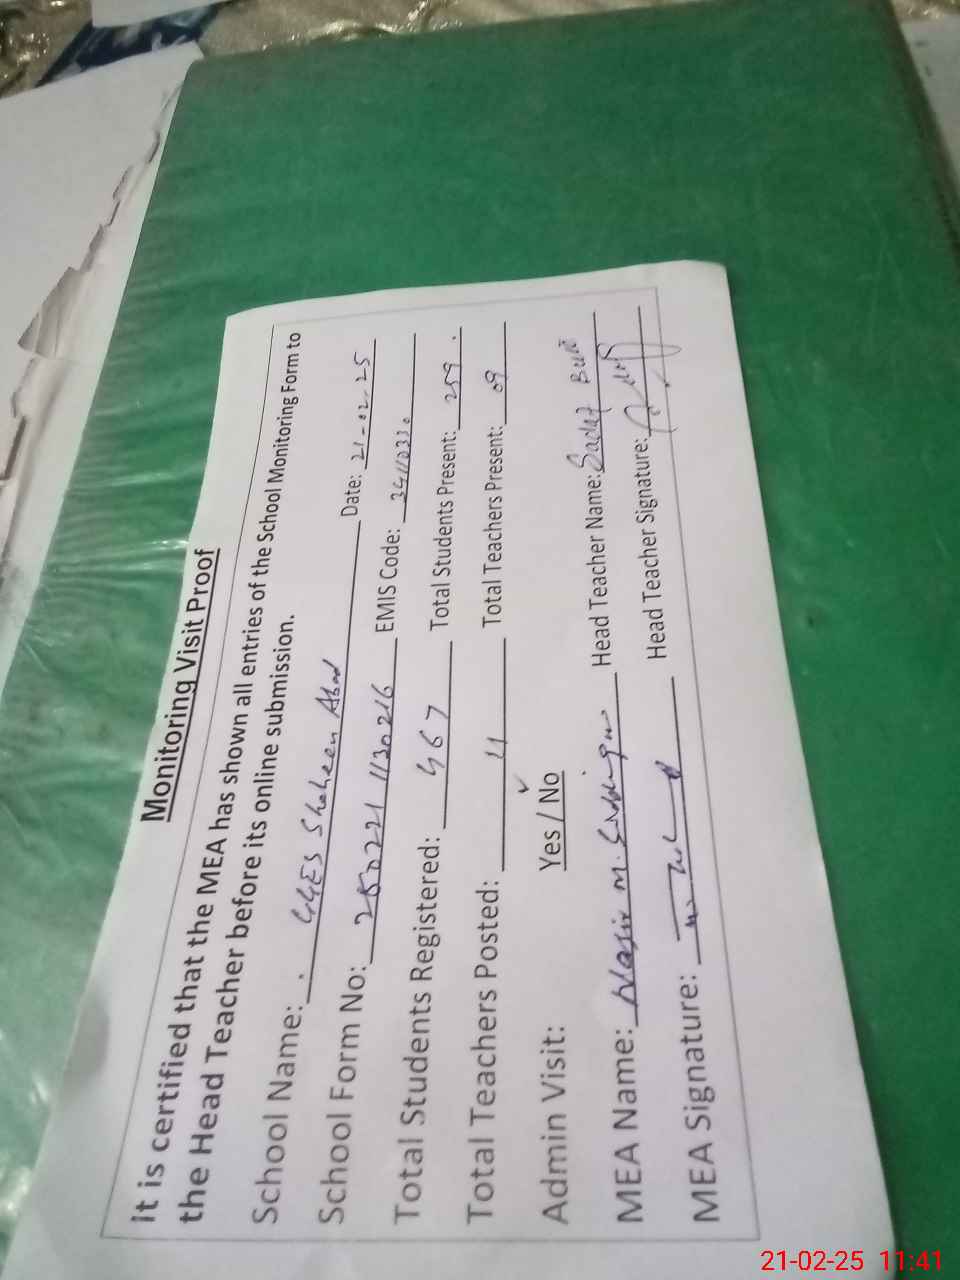 Monitoring Visit Proof
It is certified that the MEA has shown all entries of the School Monitoring Form to
the Head Teacher before its online submission.
School Name: GGES Shaheen Abad Date: 21-02-25
School Form No: 250221 1130216 EMIS Code: 34110330
Total Students Registered: 467 Total Students Present: 259
Total Teachers Posted: 11 Total Teachers Present: 09
Admin Visit: Yes / No ✓
MEA Name: Nasir M. Head Teacher Name: Sadaf Butt
MEA Signature: Head Teacher Signature:
21-02-25 11:41